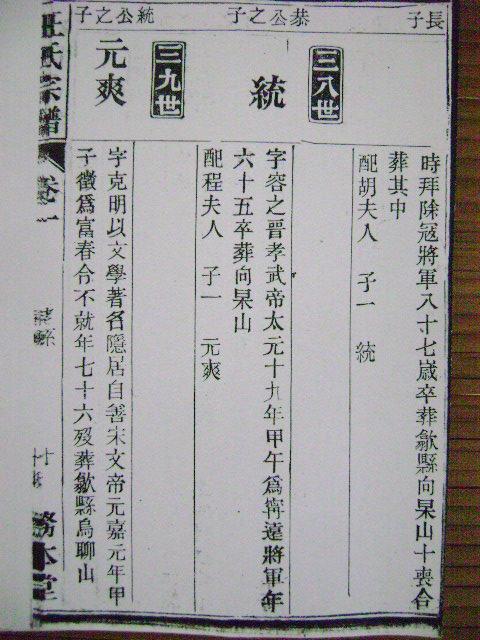 長子
時拜除冦將軍八十七歲卒葬歙縣向杲山十喪合
葬其中
配胡夫人 子一 統
恭公之子
三八世
統
字容之晉孝武帝太元十九年甲午爲寧遠將軍年
六十五卒葬向杲山
配程夫人 子一 元爽
統公之子
三九世
元爽
字克明以文學著名隱居自善宋文帝元嘉元年甲
子徵爲富春令不就年七十六歿葬歙縣烏聊山
汪氏宗譜
卷一
務本堂